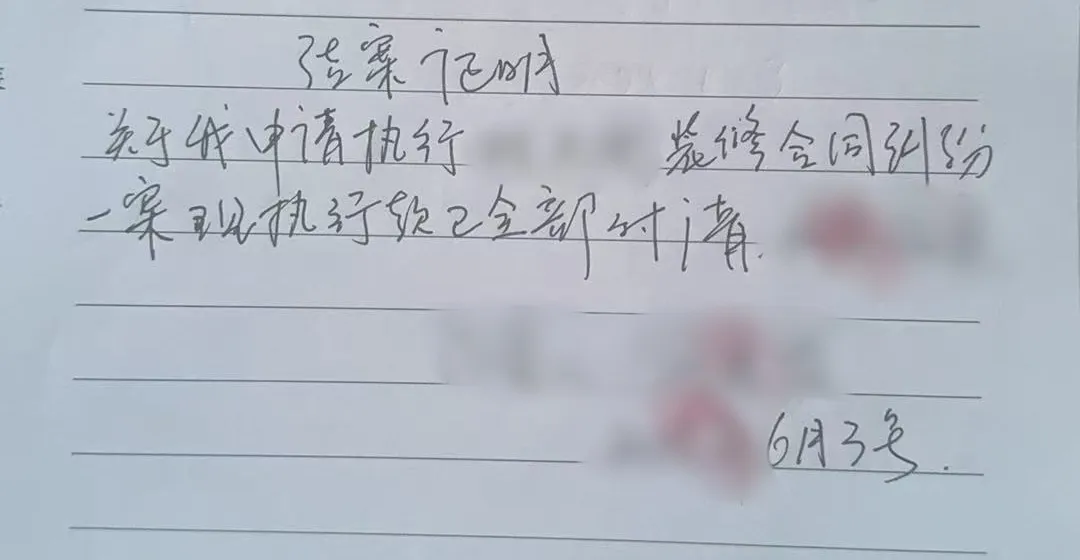 结案证明
关于我申请执行 装修合同纠纷
一案现执行款已全部付清.
6月3号.